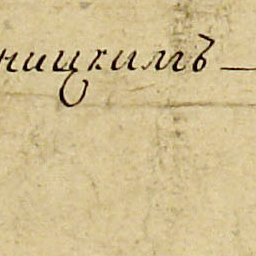 ницкимъ —